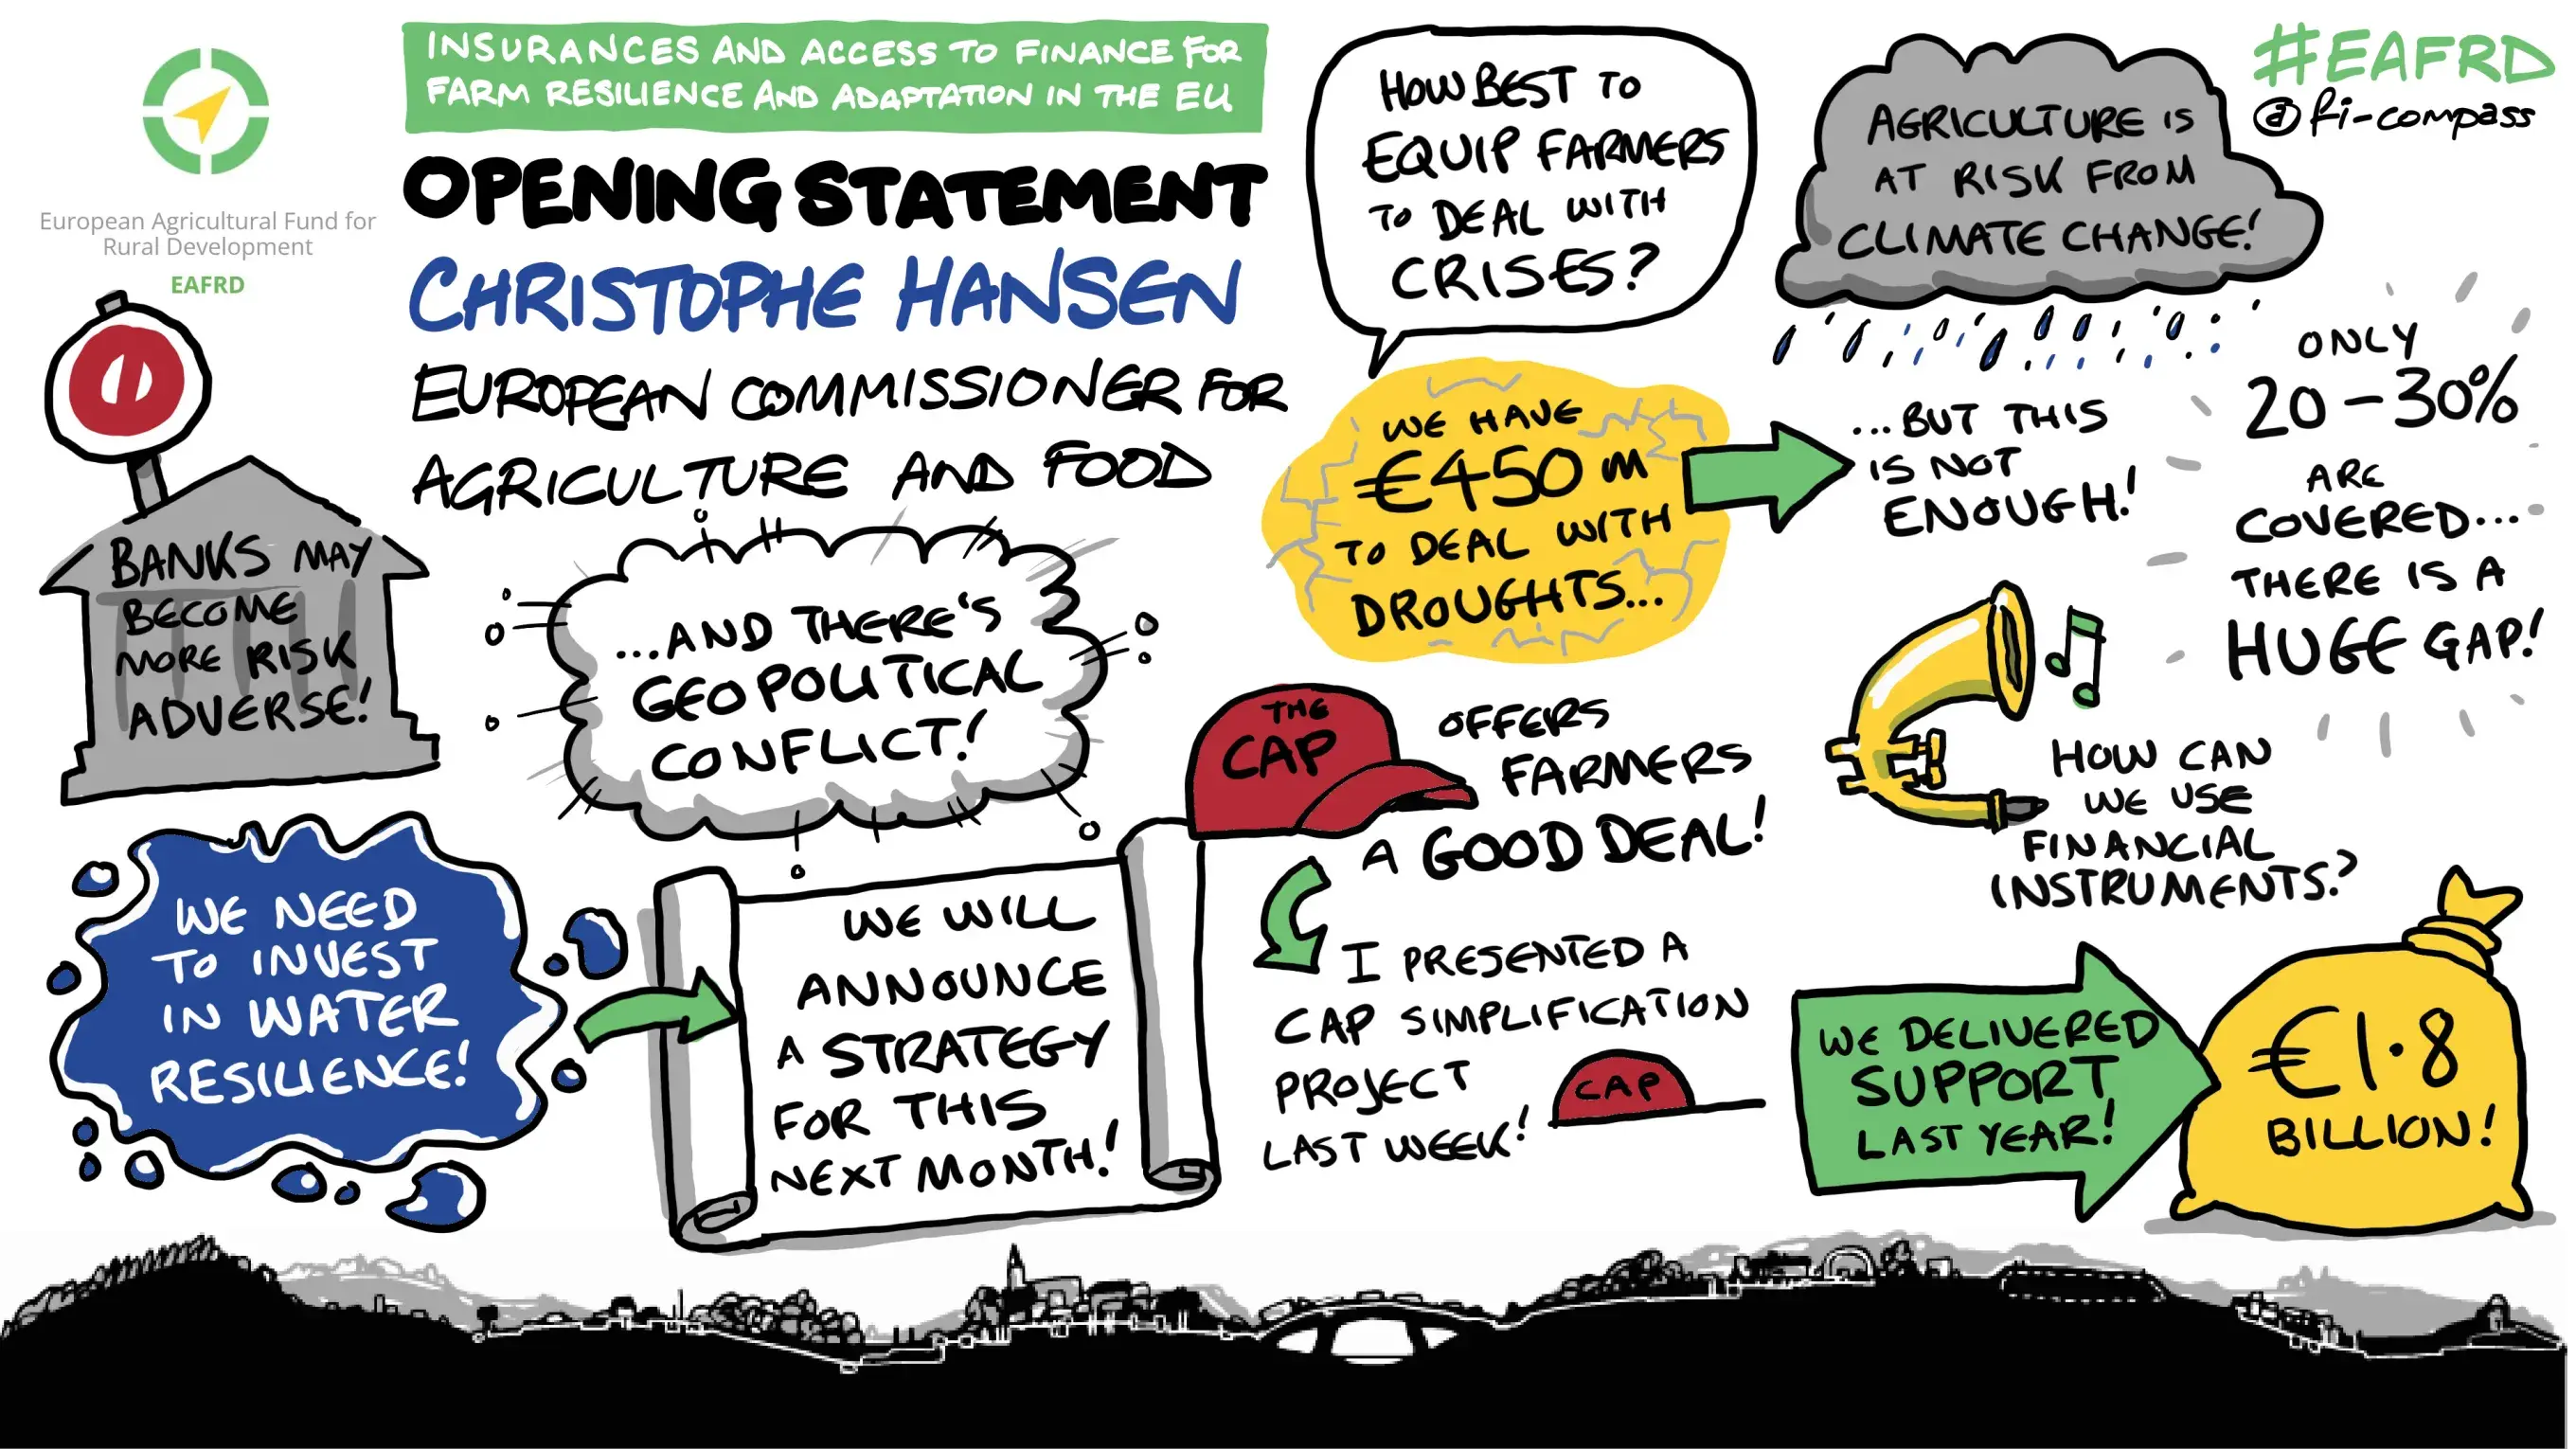 European Agricultural Fund for
Rural Development
EAFRD
INSURANCES AND ACCESS TO FINANCE FOR
FARM RESILIENCE AND ADAPTATION IN THE EU
OPENING STATEMENT
CHRISTOPHE HANSEN
EUROPEAN COMMISSIONER FOR
AGRICULTURE AND FOOD
HOW BEST TO
EQUIP FARMERS
TO DEAL WITH
CRISES?
AGRICULTURE IS
AT RISK FROM
CLIMATE CHANGE!
#EAFRD
@fi-compass
BANKS MAY
BECOME
MORE RISK
ADVERSE!
...AND THERE'S
GEOPOLITICAL
CONFLICT!
WE HAVE
€450M
TO DEAL WITH
DROUGHTS...
...BUT THIS
IS NOT
ENOUGH!
ONLY
20-30%
ARE
COVERED...
THERE IS A
HUGE GAP!
WE NEED
TO INVEST
IN WATER
RESILIENCE!
WE WILL
ANNOUNCE
A STRATEGY
FOR THIS
NEXT MONTH!
THE
CAP
OFFERS
FARMERS
A GOOD DEAL!
I PRESENTED A
CAP SIMPLIFICATION
PROJECT
LAST WEEK!
CAP
HOW CAN
WE USE
FINANCIAL
INSTRUMENTS?
WE DELIVERED
SUPPORT
LAST YEAR!
€1.8
BILLION!